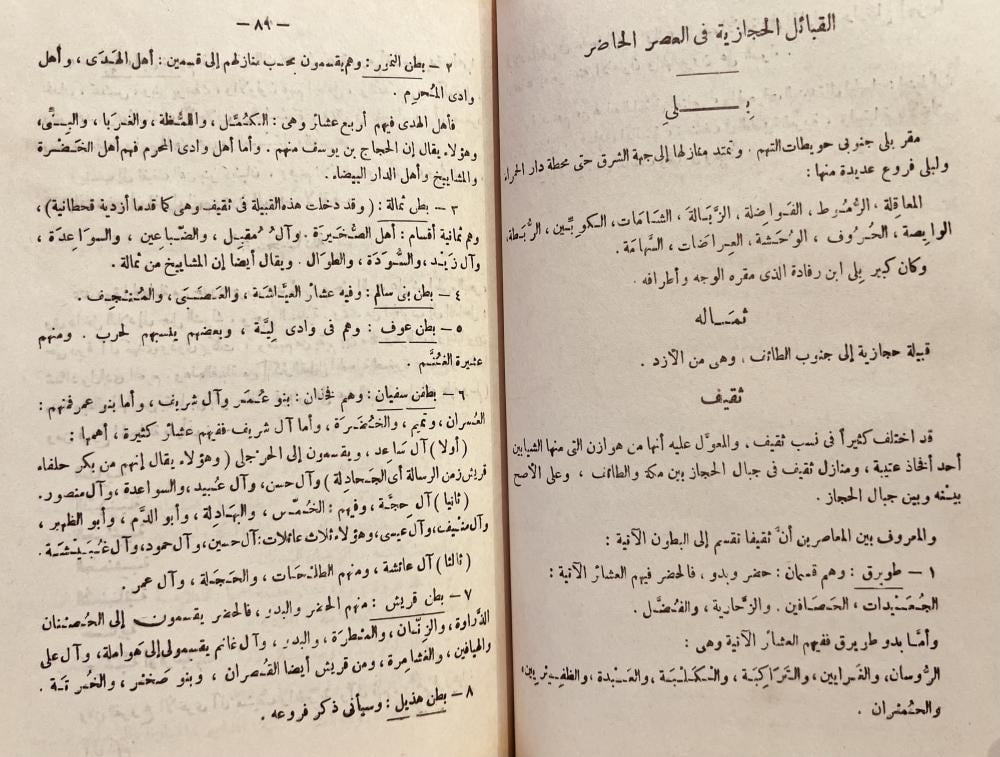 القبائل الحجازية فى العصر الحاضر
بـلى
مقر بلى جنوبي حويطات التهم . وتمتد منازلها إلى جهة الشرق حتى محطة دار الحمراء
ولبلى فروع عديدة منها :
المعاقلة ، الرُّمُوط ، الفَواضلة ، الزَّبَالَة ، الشَامَات ، الكَوبِّين ، الرُّبَطَة ،
الوابِصة ، الحُرُوف ، الوُحَشة ، العِرَاضَات ، السَّهامَة .
وكان كبير بلى ابن رفادة الذى مقره الوجه وأطرافه .
ثمَاله
قبيلة حجازية إلى جنوب الطائف ، وهى من الأزد .
ثقيف
قد اختلف كثيراً فى نسب ثقيف ، والمعوَّل عليه أنها من هوازن التى منها الشيابين
أحد أفخاذ عتيبة ، ومنازل ثقيف فى جبال الحجاز بين مكة والطائف ، وعلى الأصح
بينه وبين جبال الحجاز .
والمعروف بين المعاصرين أنَّ ثقيفا تقسم إلى البطون الآتية :
١ – طويرق : وهم قسمان : حضر وبدو ، فالحضر فيهم العشائر الآتية :
الجُعَيْدات ، الحَصَافين . والزَّحارية ، والفُضَّل .
وأمَّا بدو طويرق ففيهم العشائر الآتية وهى :
الرُّوسان ، والغَرايين ، والتَّرَاكبَة ، والتَكلَبَة ، والعَبْدة ، والظفَيْريين ،
والحُمْران .
– ٨٩ –
٢ – بطن النمور : وهم يقسمون بحسب منازلهم إلى قسمين : أهل الهَدَى ، وأهل
وادى المُحرِم .
فأهل الهدى فيهم أربع عشائر وهى : الكُمَّل ، واللمُظة ، والغَربَا ، والبِنِّى ،
وهؤلاء يقال إن الحجاج بن يوسف منهم . وأما أهل وادى المحرم فهم أهل الخَضْرة
والمشاييخ وأهل الدار البيضاء .
٣ – بطن ثمالة : ( وقد دخلت هذه القبيلة فى ثقيف وهى كما قدما أزدية قحطانية ) ،
وهم ثمانية أقسام : أهل الصُّخَيرَة . وآل مُقبِل ، والضَّباعين ، والسواعِدة ،
وآل زَيْد ، والسُّودَة ، والطوال . ويقال أيضا إن المشاييخ من ثمالة .
٤ – بطن بنى سالم : وفيه عشائر العيَّاشَة ، والعَصَبَى ، والمُنْجِف .
٥ – بطن عوف : وهم فى وادى لِيَّة ، وبعضهم ينسبهم لحرب . ومنهم
عشيرة الغُنَّم .
٦ – بطن سفيان : وهم نخذان : بنو عُمَر وآل شريف ، وأما بنو عمر فمنهم :
العُسران ، وتميم ، والخُضَرَة ، وأما آل شريف ففيهم عشائر كثيرة ، أهمها :
( أولا ) آل ساعد ، ويقسمون إلى الحرجلى ( وهؤلاء يقال إنهم من بكر حلفاء
قريش زمن الرسالة أى الجَحادِلة ) وآل حسن ، وآل عُبيد ، والسواعدة ، وآل منصور .
( ثانيا ) آل حجَّة ، وفيهم : الخُمّس ، والهادِلة ، وأبو الدَّم ، وأبو الظهير ،
وآل منيف ، وآل عيسى ، وهؤلاء ثلاث عائلات : آل حسين ، وآل حمود ، وآل غُبَيْشَة .
( ثالثا ) آل عائشة ، ومنهم الطلَحَات ، والحَجَلة ، وآل عمر .
٧ – بطن قريش : منهم الحضر والبدو ، فالحضر يقسمون إلى الحُصْنان
الدَّراوة ، والزنَّان ، والمُطرَة ، والبدو ، وآل غانم يقسمولى إلى هَواملة ، وآل على
والهيافين ، والغشامِرة ، ومن قريش أيضا القُصْران ، وبنو صَخْر ، والخُرَتة .
٨ – بطن هذيل : وسيأتى ذكر فروعه .